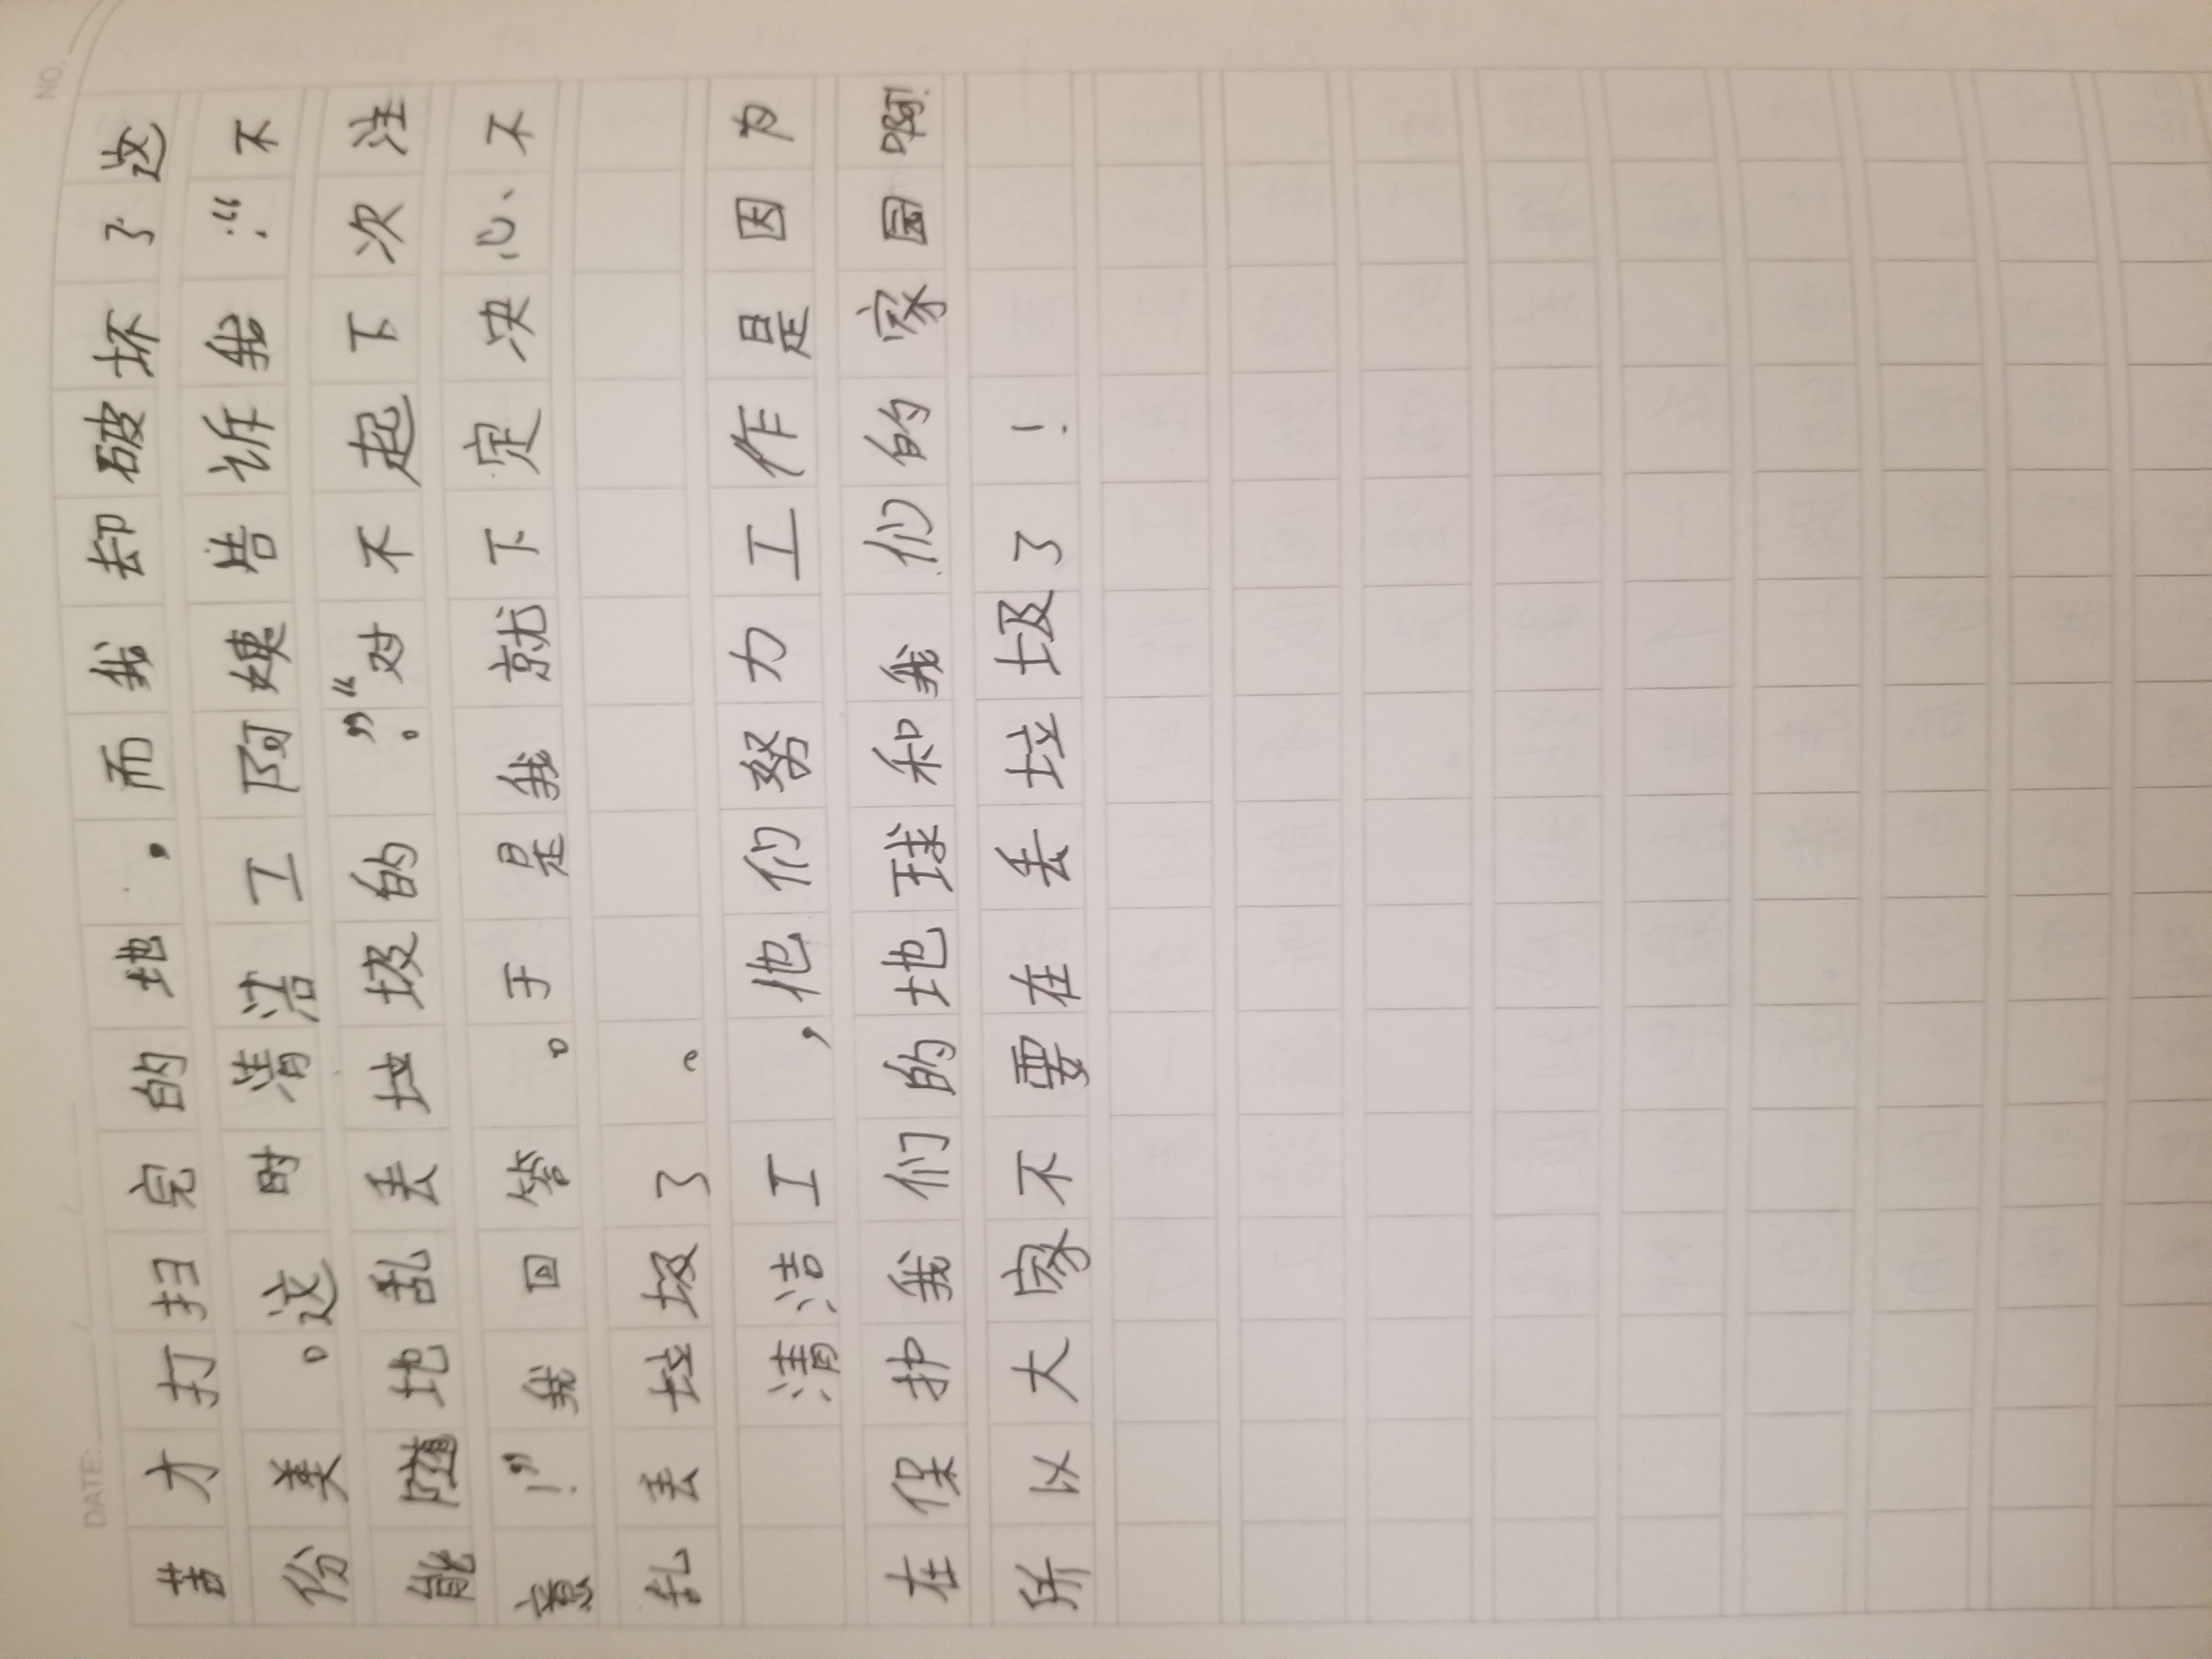 NO.
DATE:
苦才打扫完的地，而我却破坏了这
份美。这时清洁工阿姨告诉我：“不
能随地乱丢垃圾的。”“对不起下次注
意！”我回答。于是我就下定决心、不
乱丢垃圾了。
清洁工，他们努力工作是因为
在保护我们的地球和我们的家园啊！
所以大家不要在丢垃圾了！